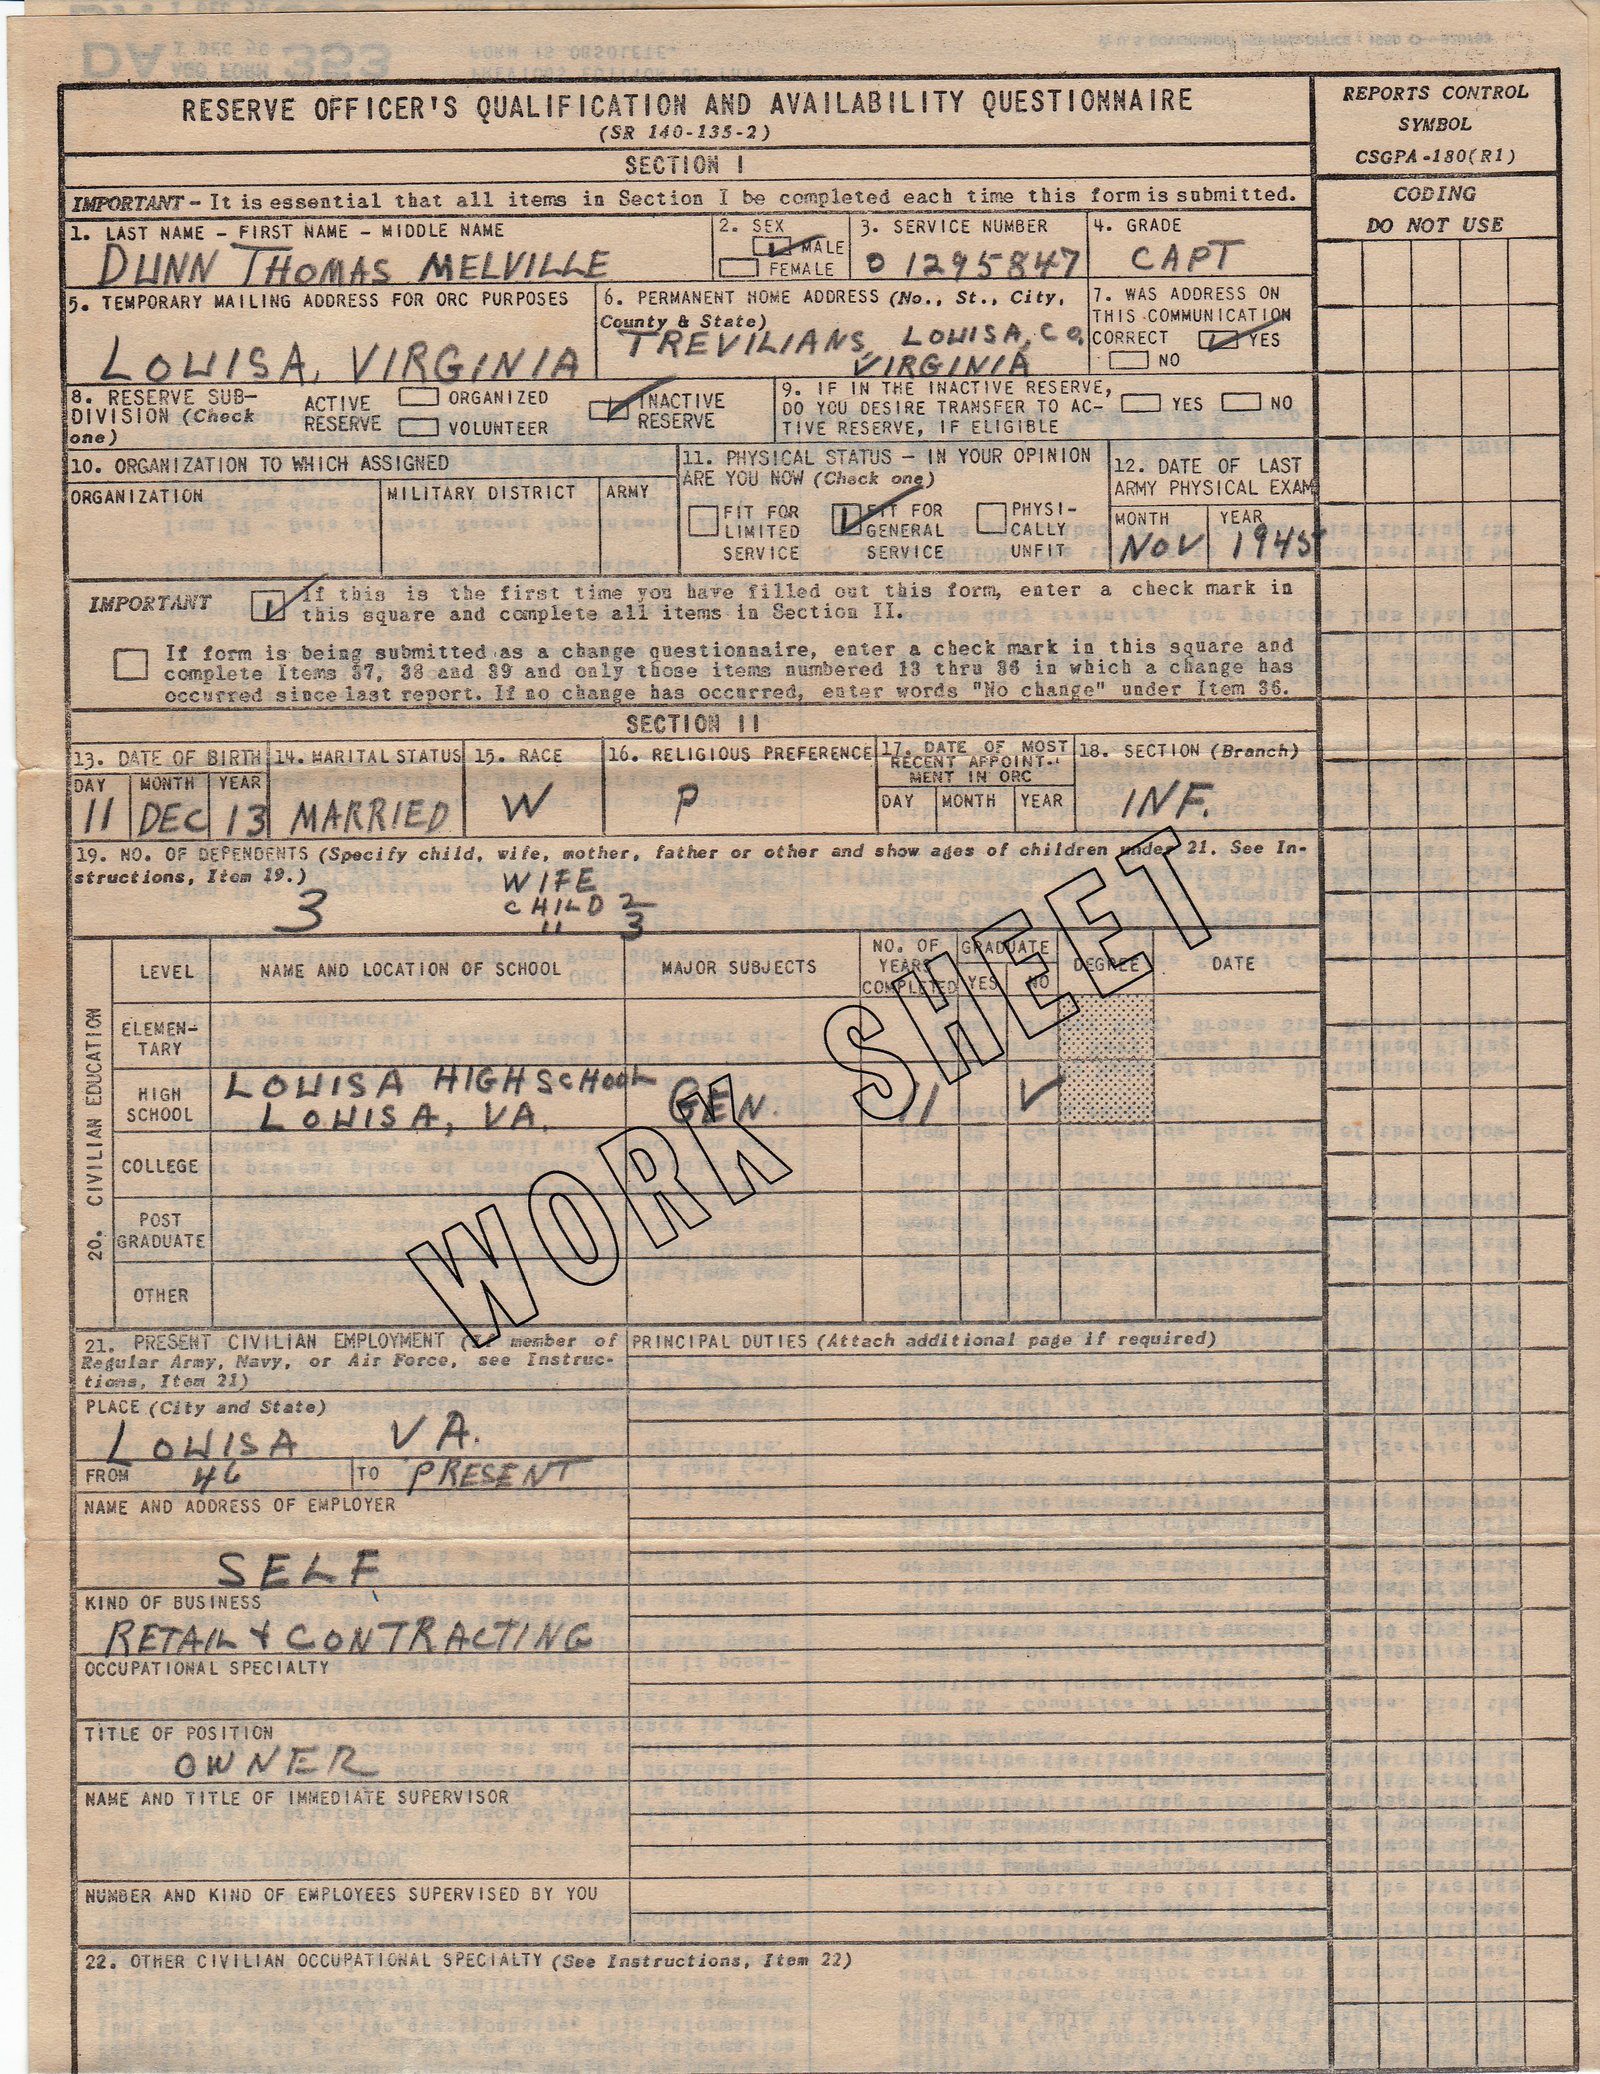 RESERVE OFFICER'S QUALIFICATION AND AVAILABILITY QUESTIONNAIRE
(SR 140-135-2)
REPORTS CONTROL
SYMBOL
CSGPA-180(R1)
SECTION I
IMPORTANT - It is essential that all items in Section I be completed each time this form is submitted.
CODING
DO NOT USE
1. LAST NAME - FIRST NAME - MIDDLE NAME
DUNN THOMAS MELVILLE
2. SEX
MALE
FEMALE
3. SERVICE NUMBER
O 1295847
4. GRADE
CAPT
5. TEMPORARY MAILING ADDRESS FOR ORC PURPOSES
LOUISA, VIRGINIA
6. PERMANENT HOME ADDRESS (No., St., City,
County & State)
TREVILIANS, LOUISA, CO.
VIRGINIA
7. WAS ADDRESS ON
THIS COMMUNICATION
CORRECT YES
NO
8. RESERVE SUB-
DIVISION (Check
one)
ACTIVE
RESERVE
ORGANIZED
VOLUNTEER
INACTIVE
RESERVE
9. IF IN THE INACTIVE RESERVE,
DO YOU DESIRE TRANSFER TO AC-
TIVE RESERVE, IF ELIGIBLE
YES NO
10. ORGANIZATION TO WHICH ASSIGNED
ORGANIZATION
MILITARY DISTRICT
ARMY
11. PHYSICAL STATUS - IN YOUR OPINION
ARE YOU NOW (Check one)
FIT FOR
LIMITED
SERVICE
FIT FOR
GENERAL
SERVICE
PHYSI-
CALLY
UNFIT
12. DATE OF LAST
ARMY PHYSICAL EXAM
MONTH YEAR
NOV 1945
IMPORTANT
If this is the first time you have filled out this form, enter a check mark in
this square and complete all items in Section II.
If form is being submitted as a change questionnaire, enter a check mark in this square and
complete Items 37, 38 and 39 and only those items numbered 13 thru 36 in which a change has
occurred since last report. If no change has occurred, enter words "No change" under Item 36.
SECTION II
13. DATE OF BIRTH
DAY MONTH YEAR
11 DEC 13
14. MARITAL STATUS
MARRIED
15. RACE
W
16. RELIGIOUS PREFERENCE
P
17. DATE OF MOST
RECENT APPOINT-
MENT IN ORC
DAY MONTH YEAR
18. SECTION (Branch)
INF.
19. NO. OF DEPENDENTS (Specify child, wife, mother, father or other and show ages of children under 21. See In-
structions, Item 19.)
3
WIFE
CHILD 2
" 3
20. CIVILIAN EDUCATION
LEVEL
NAME AND LOCATION OF SCHOOL
MAJOR SUBJECTS
NO. OF
YEARS
COMPLETED
GRADUATE
YES NO
DEGREE
DATE
ELEMEN-
TARY
HIGH
SCHOOL
LOUISA HIGH SCHOOL
LOUISA, VA.
GEN.
11
COLLEGE
POST
GRADUATE
OTHER
WORK SHEET
21. PRESENT CIVILIAN EMPLOYMENT (If member of
Regular Army, Navy, or Air Force, see Instruc-
tions, Item 21)
PRINCIPAL DUTIES (Attach additional page if required)
PLACE (City and State)
LOUISA VA.
FROM 46 TO PRESENT
NAME AND ADDRESS OF EMPLOYER
SELF
KIND OF BUSINESS
RETAIL & CONTRACTING
OCCUPATIONAL SPECIALTY
TITLE OF POSITION
OWNER
NAME AND TITLE OF IMMEDIATE SUPERVISOR
NUMBER AND KIND OF EMPLOYEES SUPERVISED BY YOU
22. OTHER CIVILIAN OCCUPATIONAL SPECIALTY (See Instructions, Item 22)